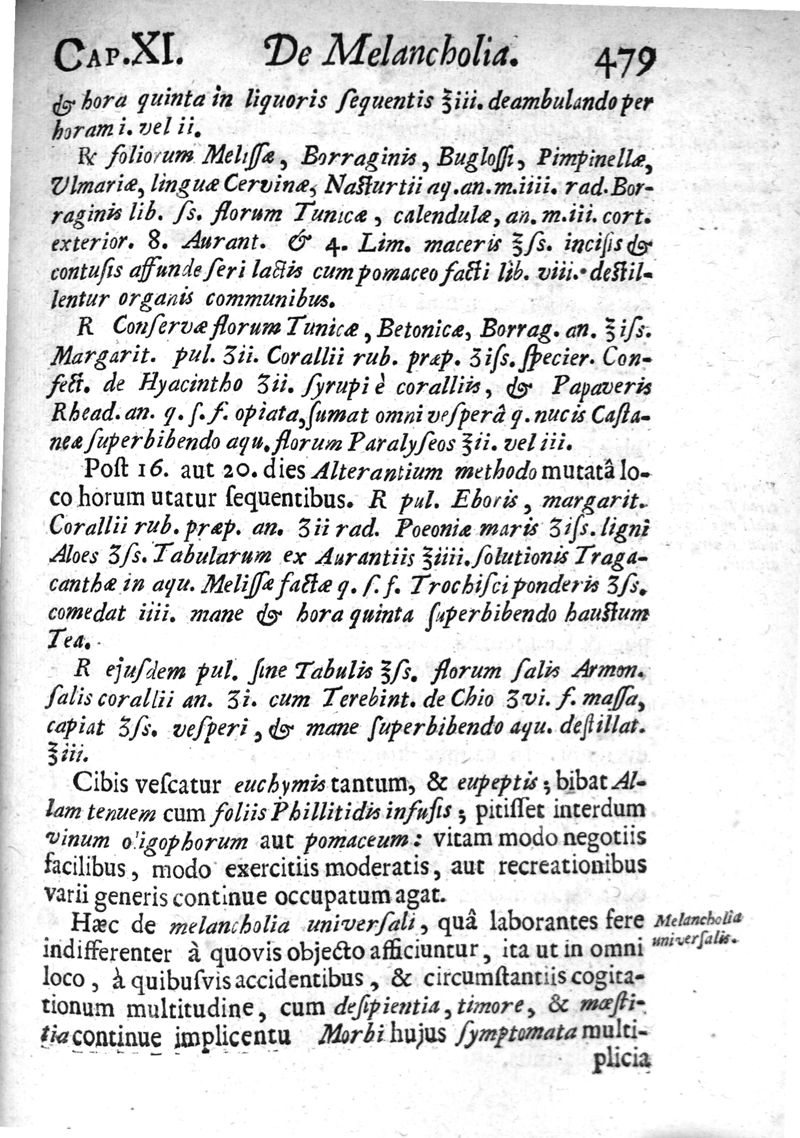 CAP.XI. De Melancholia. 479
& hora quinta in liquoris ſequentis ℥iii. deambulando per
horam i. vel ii.
℞ foliorum Meliſſæ, Borraginis, Bugloſſi, Pimpinellæ,
Ulmariæ, linguæ Cervinæ, Naſturtii aq. an. m. iiii. rad. Bor-
raginis lib. ſs. florum Tunicæ, calendulæ, an. m. iii. cort.
exterior. 8. Aurant. & 4. Lim. maceris ℥ſs. inciſis &
contuſis affunde ſeri lactis cum pomaceo facti lib. viii. deſtil-
lentur organis communibus.
R Conſervæ florum Tunicæ, Betonicæ, Borrag. an. ℥iſs.
Margarit. pul. ʒii. Corallii rub. præp. ʒiſs. ſpecier. Con-
fect. de Hyacintho ʒii. ſyrupi è coralliis, & Papaveris
Rhead. an. q. ſ. f. opiata, ſumat omni veſperâ q. nucis Caſta-
neæ ſuperbibendo aqu. florum Paralyſeos ℥ii. vel iii.
Poſt 16. aut 20. dies Alterantium methodo mutatâ lo-
co horum utatur ſequentibus. R pul. Eboris, margarit.
Corallii rub. præp. an. ʒii rad. Poeoniæ maris ʒiſs. ligni
Aloes ʒſs. Tabularum ex Aurantiis ℥iiii. ſolutionis Traga-
canthæ in aqu. Meliſſæ factæ q. ſ. f. Trochiſci ponderis ʒſs.
comedat iiii. mane & hora quinta ſuperbibendo hauſtum
Tea.
R ejuſdem pul. ſine Tabulis ℥ſs. florum ſalis Armon.
ſalis corallii an. ʒi. cum Terebint. de Chio ʒvi. f. maſſa,
capiat ʒſs. veſperi, & mane ſuperbibendo aqu. deſtillat.
℥iii.
Cibis veſcatur euchymis tantum, & eupeptis; bibat Al-
lam tenuem cum foliis Phillitidis infuſis; pitiſſet interdum
vinum oligophorum aut pomaceum: vitam modo negotiis
facilibus, modo exercitiis moderatis, aut recreationibus
varii generis continue occupatum agat.
Hæc de melancholia univerſali, quâ laborantes fere
Melancholia
univerſalis.
indifferenter à quovis objecto afficiuntur, ita ut in omni
loco, à quibuſvis accidentibus, & circumſtantiis cogita-
tionum multitudine, cum deſipientia, timore, & mœſti-
tia continue implicentu Morbi hujus ſymptomata multi-
plicia